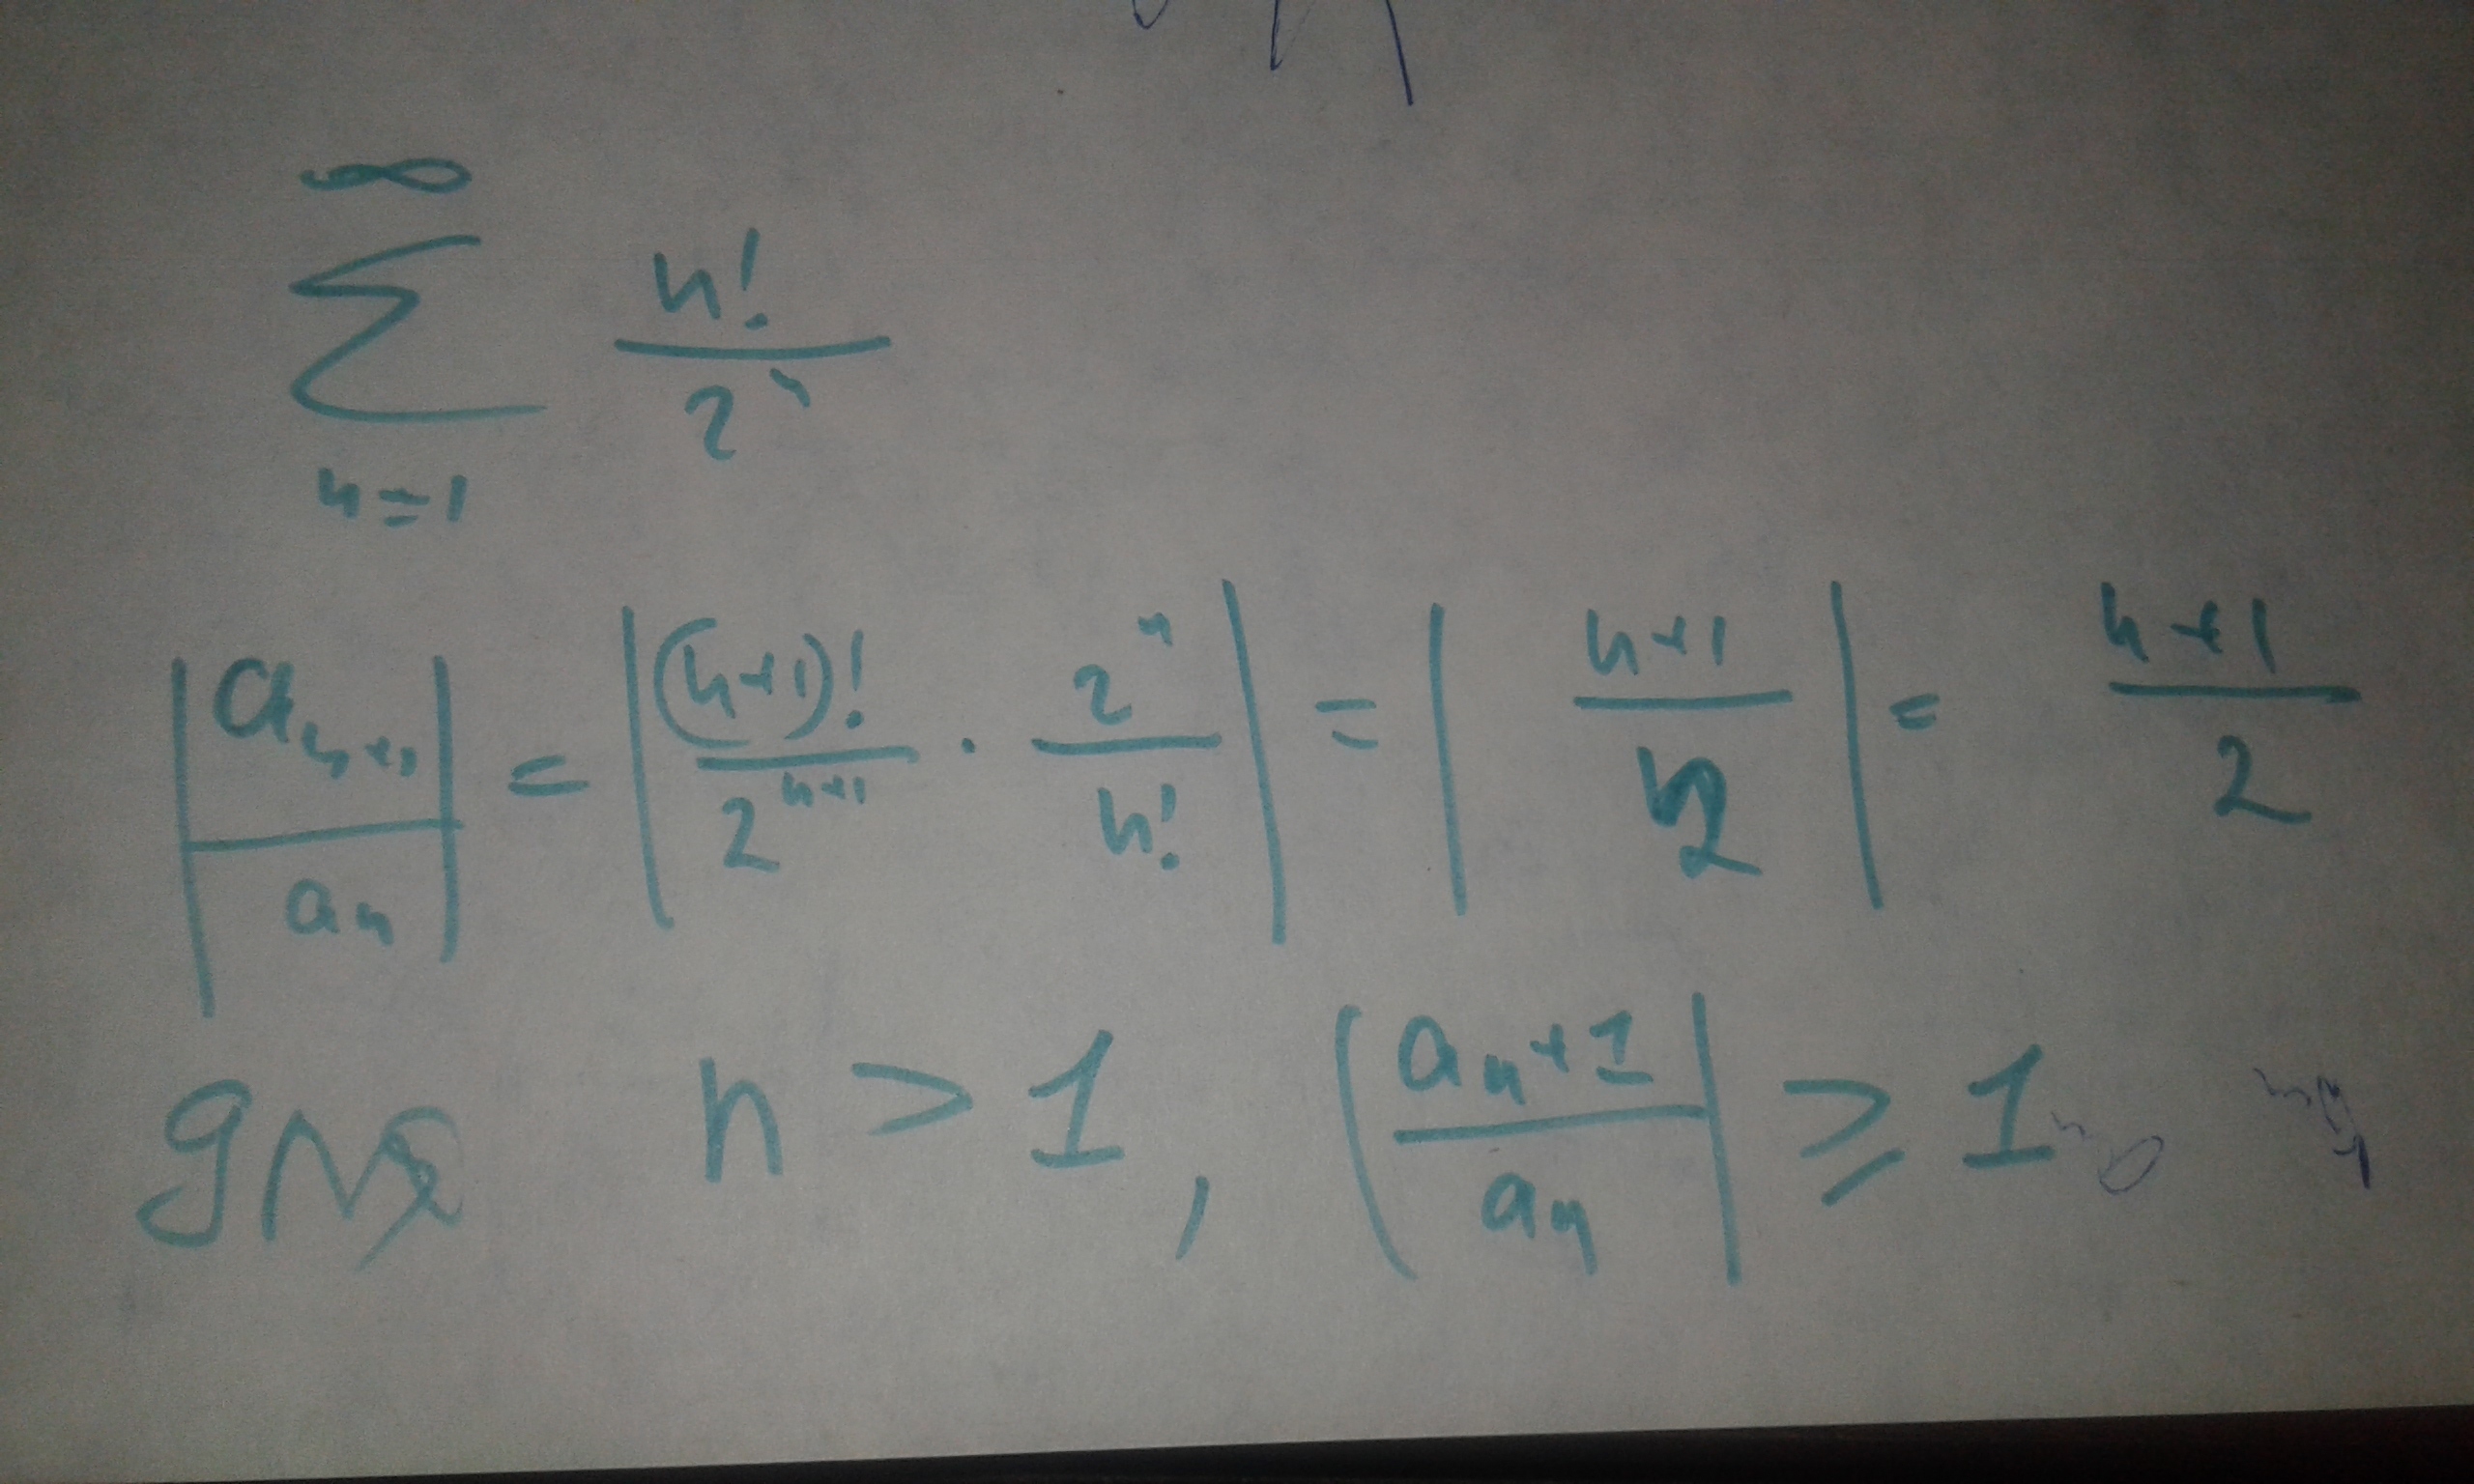 ∞
∑ n! / 2ⁿ
n=1
|aₙ₊₁ / aₙ| = |(n+1)! / 2ⁿ⁺¹ · 2ⁿ / n!| = |n+1 / 2| = n+1 / 2
для n > 1, |aₙ₊₁ / aₙ| ≥ 1